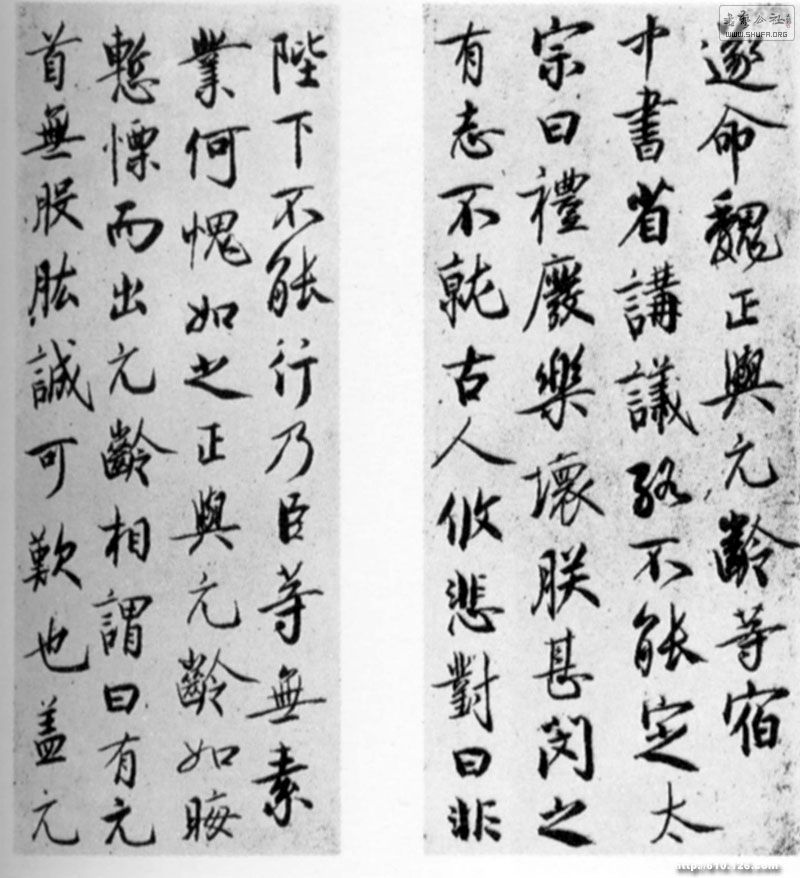 遂命魏正與元齡等宿
中書省講議終不能定太
宗曰禮廢樂壞朕甚閔之
有志不就古人攸悲對曰非
陛下不能行乃臣等無素
業何愧如之正與元齡如晦
慙慄而出元齡相謂曰有元
首無股肱誠可歎也盖元
書藝公社
WWW.SHUFA.ORG
http://610.126.com